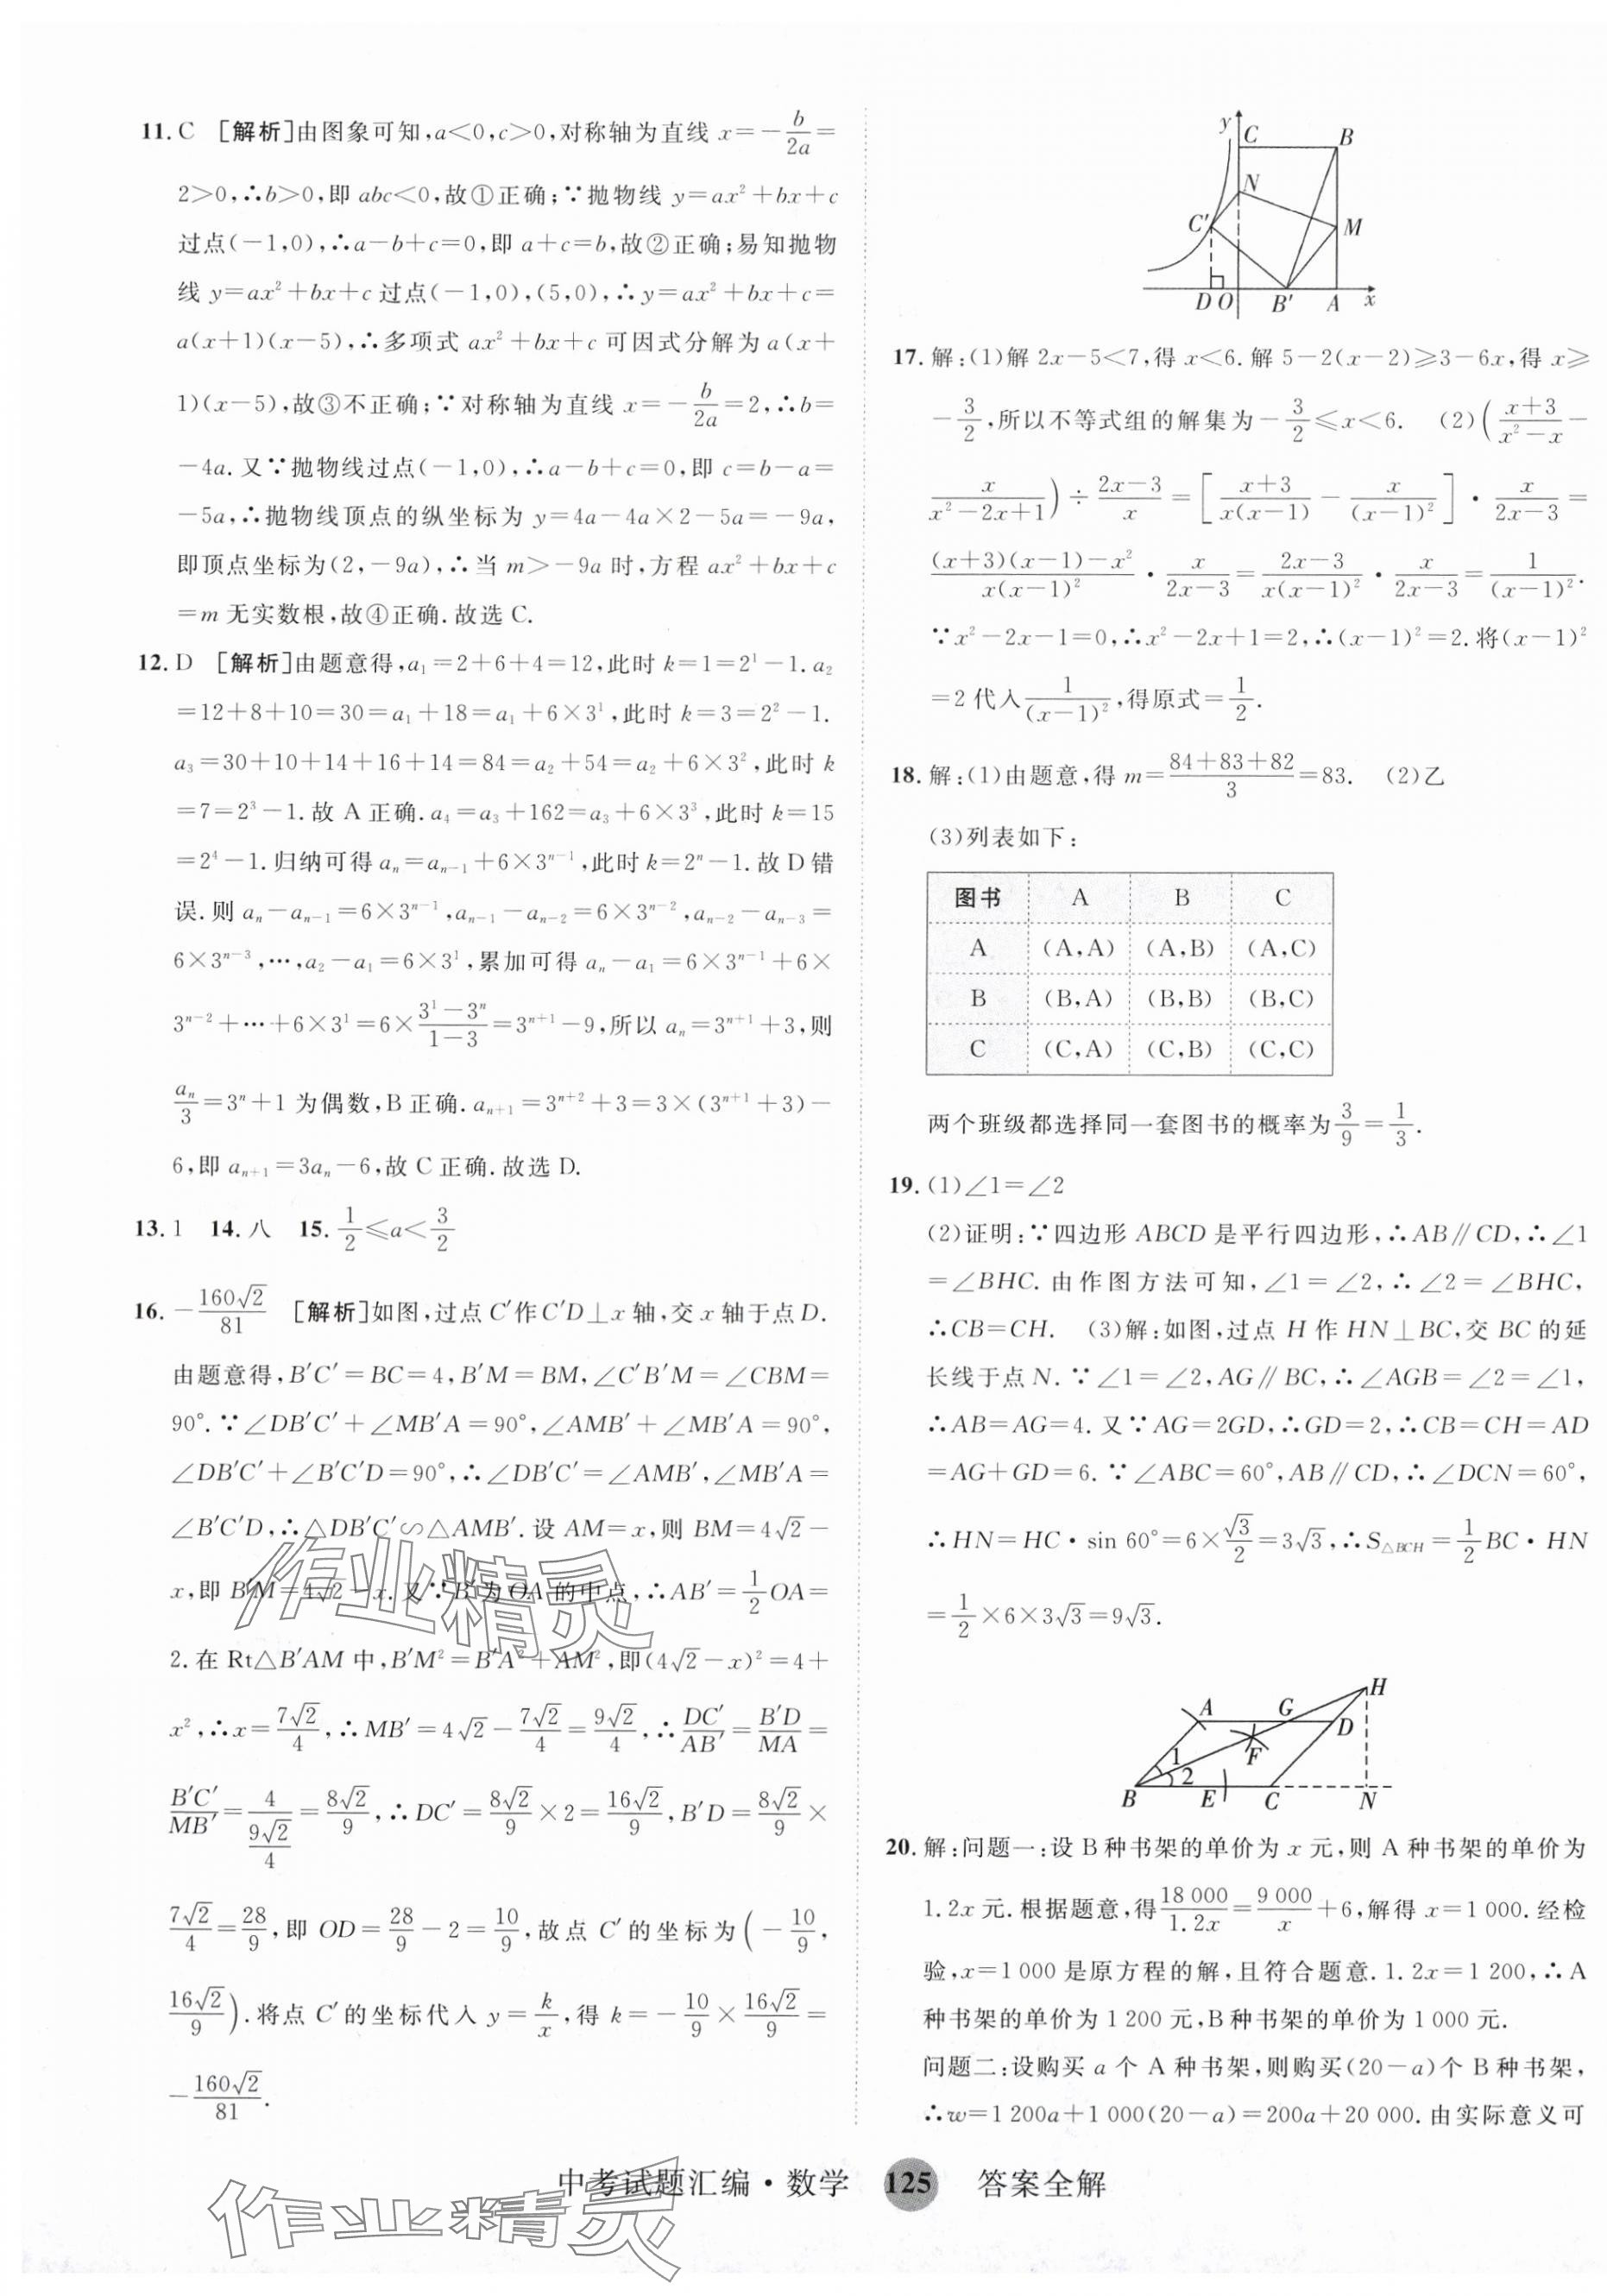 11. C　[解析]由图象可知,a<0,c>0,对称轴为直线 x=-b/2a=
2>0,∴b>0,即 abc<0,故①正确;∵抛物线 y=ax²+bx+c
过点(-1,0),∴a-b+c=0,即 a+c=b,故②正确;易知抛物
线 y=ax²+bx+c 过点(-1,0),(5,0),∴y=ax²+bx+c=
a(x+1)(x-5),∴多项式 ax²+bx+c 可因式分解为 a(x+
1)(x-5),故③不正确;∵对称轴为直线 x=-b/2a=2,∴b=
-4a.又∵抛物线过点(-1,0),∴a-b+c=0,即 c=b-a=
-5a,∴抛物线顶点的纵坐标为 y=4a-4a×2-5a=-9a,
即顶点坐标为(2,-9a),∴当 m>-9a 时,方程 ax²+bx+c
=m 无实数根,故④正确.故选 C.
12. D　[解析]由题意得,a₁=2+6+4=12,此时 k=1=2¹-1.a₂
=12+8+10=30=a₁+18=a₁+6×3¹,此时 k=3=2²-1.
a₃=30+10+14+16+14=84=a₂+54=a₂+6×3²,此时 k
=7=2³-1.故 A 正确.a₄=a₃+162=a₃+6×3³,此时 k=15
=2⁴-1.归纳可得 aₙ=aₙ₋₁+6×3ⁿ⁻¹,此时 k=2ⁿ-1.故 D 错
误.则 aₙ-aₙ₋₁=6×3ⁿ⁻¹,aₙ₋₁-aₙ₋₂=6×3ⁿ⁻²,aₙ₋₂-aₙ₋₃=
6×3ⁿ⁻³,…,a₂-a₁=6×3¹,累加可得 aₙ-a₁=6×3ⁿ⁻¹+6×
3ⁿ⁻²+…+6×3¹=6×(3¹-3ⁿ)/(1-3)=3ⁿ⁺¹-9,所以 aₙ=3ⁿ⁺¹+3,则
aₙ/3=3ⁿ+1 为偶数,B 正确.aₙ₊₁=3ⁿ⁺²+3=3×(3ⁿ⁺¹+3)-
6,即 aₙ₊₁=3aₙ-6,故 C 正确.故选 D.
13. 1　14. 八　15. 1/2≤a<3/2
16. -160√2/81　[解析]如图,过点 C′作 C′D⊥x 轴,交 x 轴于点 D.
由题意得,B′C′=BC=4,B′M=BM,∠C′B′M=∠CBM=
90°.∵∠DB′C′+∠MB′A=90°,∠AMB′+∠MB′A=90°,
∠DB′C′+∠B′C′D=90°,∴∠DB′C′=∠AMB′,∠MB′A=
∠B′C′D,∴△DB′C′∽△AMB′.设 AM=x,则 BM=4√2-
x,即 B′M=4√2-x.又∵B′为 OA 的中点,∴AB′=1/2OA=
2.在 Rt△B′AM 中,B′M²=B′A²+AM²,即(4√2-x)²=4+
x²,∴x=7√2/4,∴MB′=4√2-7√2/4=9√2/4,∴DC′/AB′=B′D/MA=
B′C′/MB′=4/(9√2/4)=8√2/9,∴DC′=8√2/9×2=16√2/9,B′D=8√2/9×
7√2/4=28/9,即 OD=28/9-2=10/9,故点 C′的坐标为(-10/9,
16√2/9).将点 C′的坐标代入 y=k/x,得 k=-10/9×16√2/9=
-160√2/81.
y
C
B
N
C′
M
D
O
B′
A
x
17. 解:(1)解 2x-5<7,得 x<6.解 5-2(x-2)≥3-6x,得 x≥
-3/2,所以不等式组的解集为-3/2≤x<6.　(2)((x+3)/(x²-x)-
x/(x²-2x+1))÷(2x-3)/x=[(x+3)/(x(x-1))-x/(x-1)²]·x/(2x-3)=
((x+3)(x-1)-x²)/(x(x-1)²)·x/(2x-3)=(2x-3)/(x(x-1)²)·x/(2x-3)=1/(x-1)².
∵x²-2x-1=0,∴x²-2x+1=2,∴(x-1)²=2.将(x-1)²
=2 代入 1/(x-1)²,得原式=1/2.
18. 解:(1)由题意,得 m=(84+83+82)/3=83.　(2)乙
(3)列表如下:
图书　A　B　C
A　(A,A)　(A,B)　(A,C)
B　(B,A)　(B,B)　(B,C)
C　(C,A)　(C,B)　(C,C)
两个班级都选择同一套图书的概率为3/9=1/3.
19. (1)∠1=∠2
(2)证明:∵四边形 ABCD 是平行四边形,∴AB∥CD,∴∠1
=∠BHC.由作图方法可知,∠1=∠2,∴∠2=∠BHC,
∴CB=CH.　(3)解:如图,过点 H 作 HN⊥BC,交 BC 的延
长线于点 N.∵∠1=∠2,AG∥BC,∴∠AGB=∠2=∠1,
∴AB=AG=4.又∵AG=2GD,∴GD=2,∴CB=CH=AD
=AG+GD=6.∵∠ABC=60°,AB∥CD,∴∠DCN=60°,
∴HN=HC·sin 60°=6×√3/2=3√3,∴S△BCH=1/2BC·HN
=1/2×6×3√3=9√3.
H
A
G
D
F
1
2
B
E
C
N
20. 解:问题一:设 B 种书架的单价为 x 元,则 A 种书架的单价为
1.2x 元.根据题意,得18 000/1.2x=9 000/x+6,解得 x=1 000.经检
验,x=1 000 是原方程的解,且符合题意.1.2x=1 200,∴A
种书架的单价为 1 200 元,B 种书架的单价为 1 000 元.
问题二:设购买 a 个 A 种书架,则购买(20-a)个 B 种书架,
∴w=1 200a+1 000(20-a)=200a+20 000.由实际意义可
中考试题汇编·数学　125　答案全解
作业精灵
作业精灵